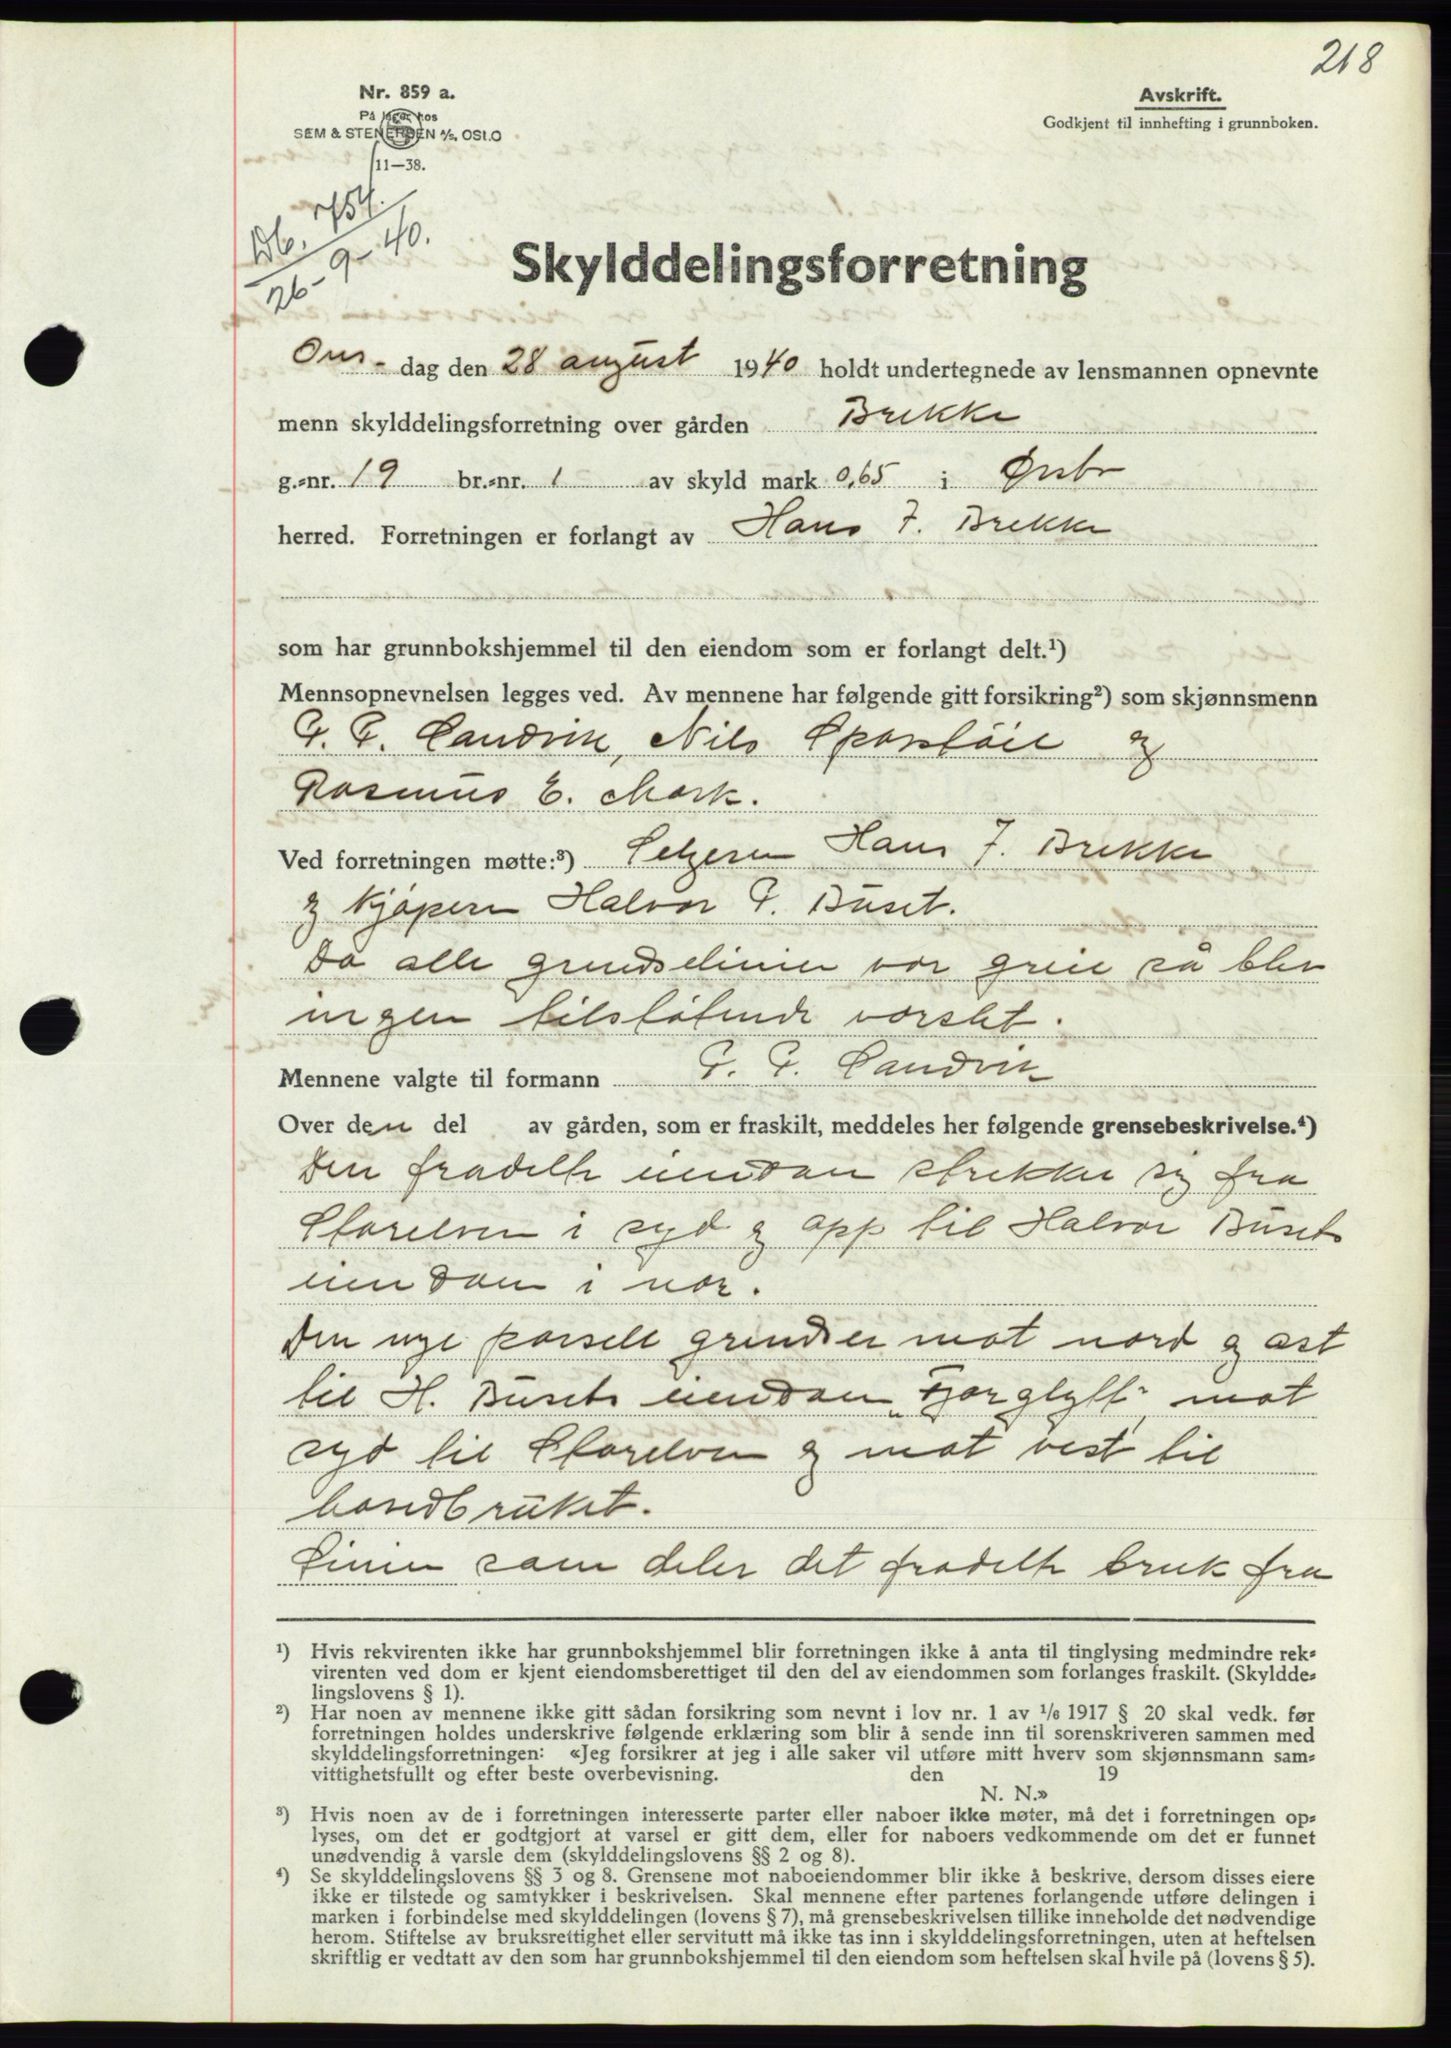 218
Nr. 859 a.
På lager hos
SEM & STENERSEN A/S, OSLO
11—38.
Avskrift.
Godkjent til innhefting i grunnboken.
Db. 754.
26-9-40.
Skylddelingsforretning
Ons- dag den 28 august 1940 holdt undertegnede av lensmannen opnevnte
menn skylddelingsforretning over gården Brekke
g.=nr. 19 br.=nr. 1 av skyld mark 0,65 i Ørsta
herred. Forretningen er forlangt av Hans J. Brekke
som har grunnbokshjemmel til den eiendom som er forlangt delt.¹)
Mennsopnevnelsen legges ved. Av mennene har følgende gitt forsikring²) som skjønnsmenn
P. P. Sandvik, Nils og
Rasmus E. Mork.
Ved forretningen møtte:³) Selgeren Hans J. Brekke
og kjøperen Halvor P. Buset.
Da alle grendselinier var greie så blev
ingen tilstøtende varslet.
Mennene valgte til formann P. P. Sandvik
Over den del av gården, som er fraskilt, meddeles her følgende grensebeskrivelse.⁴)
Den fradelte eiendom strekker sig fra
Storelven i syd og opp til Halvor Busets
eiendom i nor.
Den nye parsell grendser mot nord og øst
til H. Busets eiendom "Fjorglytt" mot
syd til Storelven og mot vest til
hovedbruket.
Linien som deler det fradelte bruk fra
¹) Hvis rekvirenten ikke har grunnbokshjemmel blir forretningen ikke å anta til tinglysing medmindre rek=
virenten ved dom er kjent eiendomsberettiget til den del av eiendommen som forlanges fraskilt. (Skyldde=
lingslovens § 1).
²) Har noen av mennene ikke gitt sådan forsikring som nevnt i lov nr. 1 av ¹/₆ 1917 § 20 skal vedk. før
forretningen holdes underskrive følgende erklæring som blir å sende inn til sorenskriveren sammen med
skylddelingsforretningen: «Jeg forsikrer at jeg i alle saker vil utføre mitt hverv som skjønnsmann sam=
vittighetsfullt og efter beste overbevisning. den 19
N. N.»
³) Hvis noen av de i forretningen interesserte parter eller naboer ikke møter, må det i forretningen op=
lyses, om det er godtgjort at varsel er gitt dem, eller for naboers vedkommende om det er funnet
unødvendig å varsle dem (skylddelingslovens §§ 2 og 8).
⁴) Se skylddelingslovens §§ 3 og 8. Grensene mot naboeiendommer blir ikke å beskrive, dersom disses eiere
ikke er tilstede og samtykker i beskrivelsen. Skal mennene efter partenes forlangende utføre delingen i
marken i forbindelse med skylddelingen (lovens § 7), må grensebeskrivelsen tillike inneholde det nødvendige
herom. Stiftelse av bruksrettighet eller servitutt må ikke tas inn i skylddelingsforretningen, uten at heftelsen
skriftlig er vedtatt av den som har grunnbokshjemmel til den eiendom som heftelsen skal hvile på (lovens § 5).